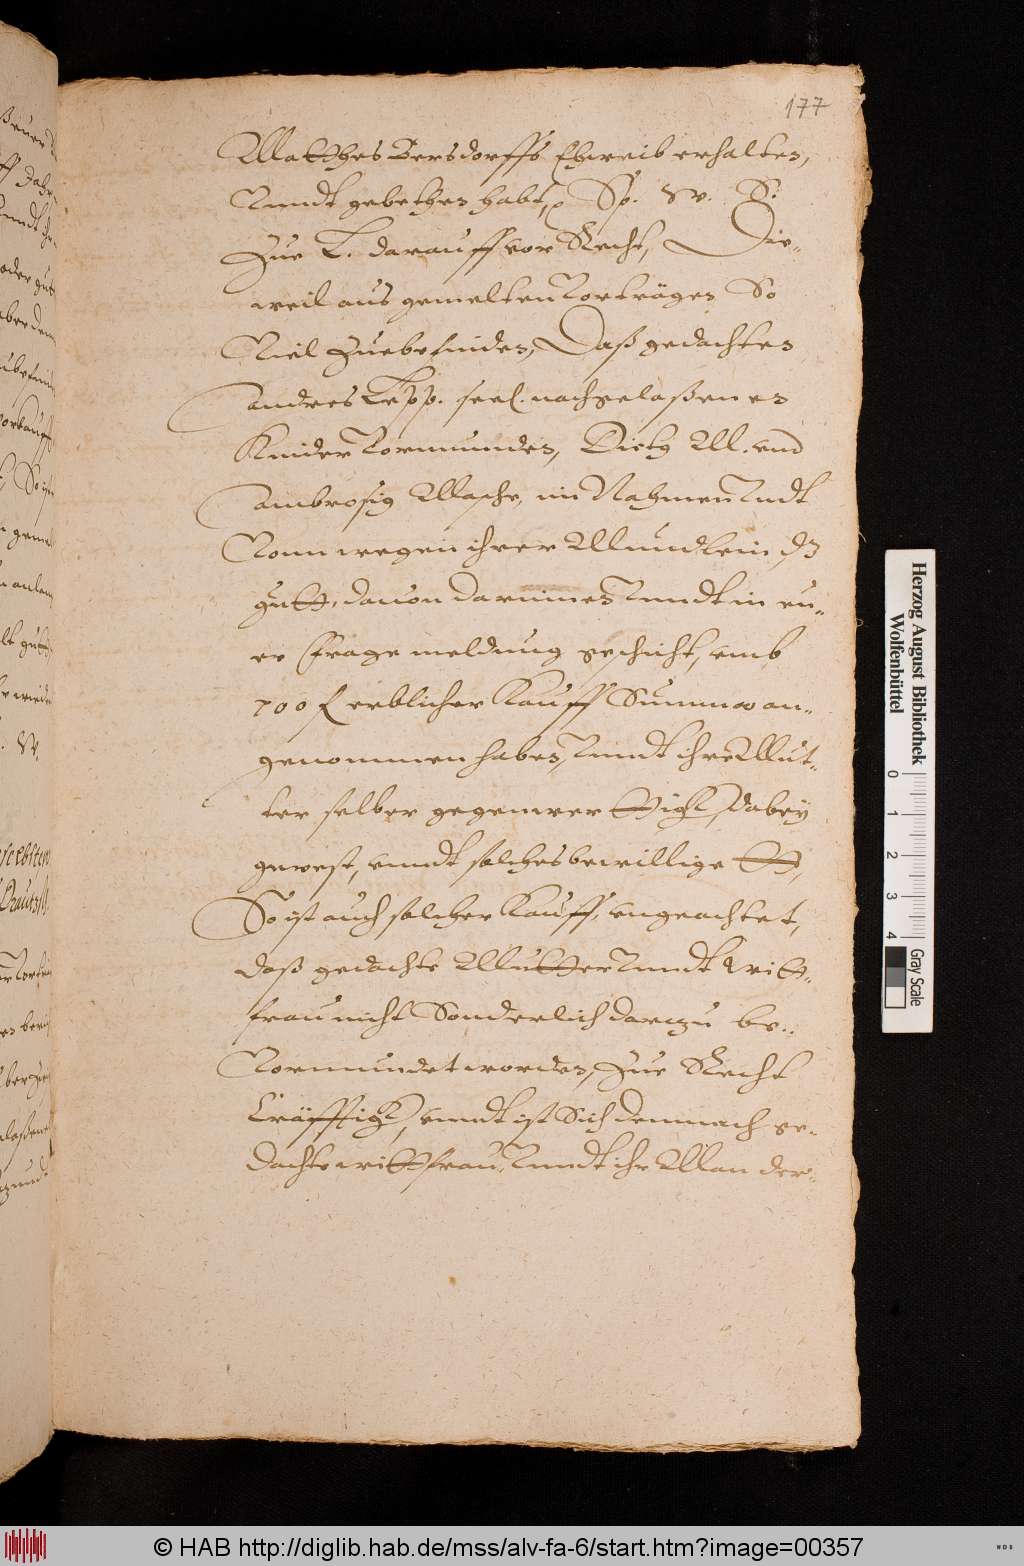 177
Matthes Bersdorffs Eheweib erhalten,
Vnndt gebethen habt, Sp. W. S:
Zue L. darauff vor Recht, Die-
weil aus gemelten Vorträgen So
Viel Zuebefinden, Daß gedachten
andres Lepp. seel. nachgelaßenen
Kinder Vormunden, Dietz M. vnd
ambrosig Masche, im Nahmen Vndt
Vonn wegen ihrer Mundlein, dz
gutt, dauon darinnen Vnndt in eu-
er frage meldung geschicht, vmb
700 f erblicher Kauff Summa an-
genommen haben, Vnndt ihre Mut-
ter selber gegenwerttigk, dabey
gewest, vnndt solches bewilliget,
So ist auch solcher Kauff, vngeachtet,
daß gedachte Mutter Vnndt Witt-
frau nicht Sonderlich darzu be-
Vormundet worden, Zue Recht
Kräfftigk, vnndt ist Sich demnach ge-
dachte wittfrau, Vnndt ihr Man der-
Herzog August Bibliothek
Wolfenbüttel
0 1 2 3 4
Gray Scale
© HAB http://diglib.hab.de/mss/alv-fa-6/start.htm?image=00357
WDB